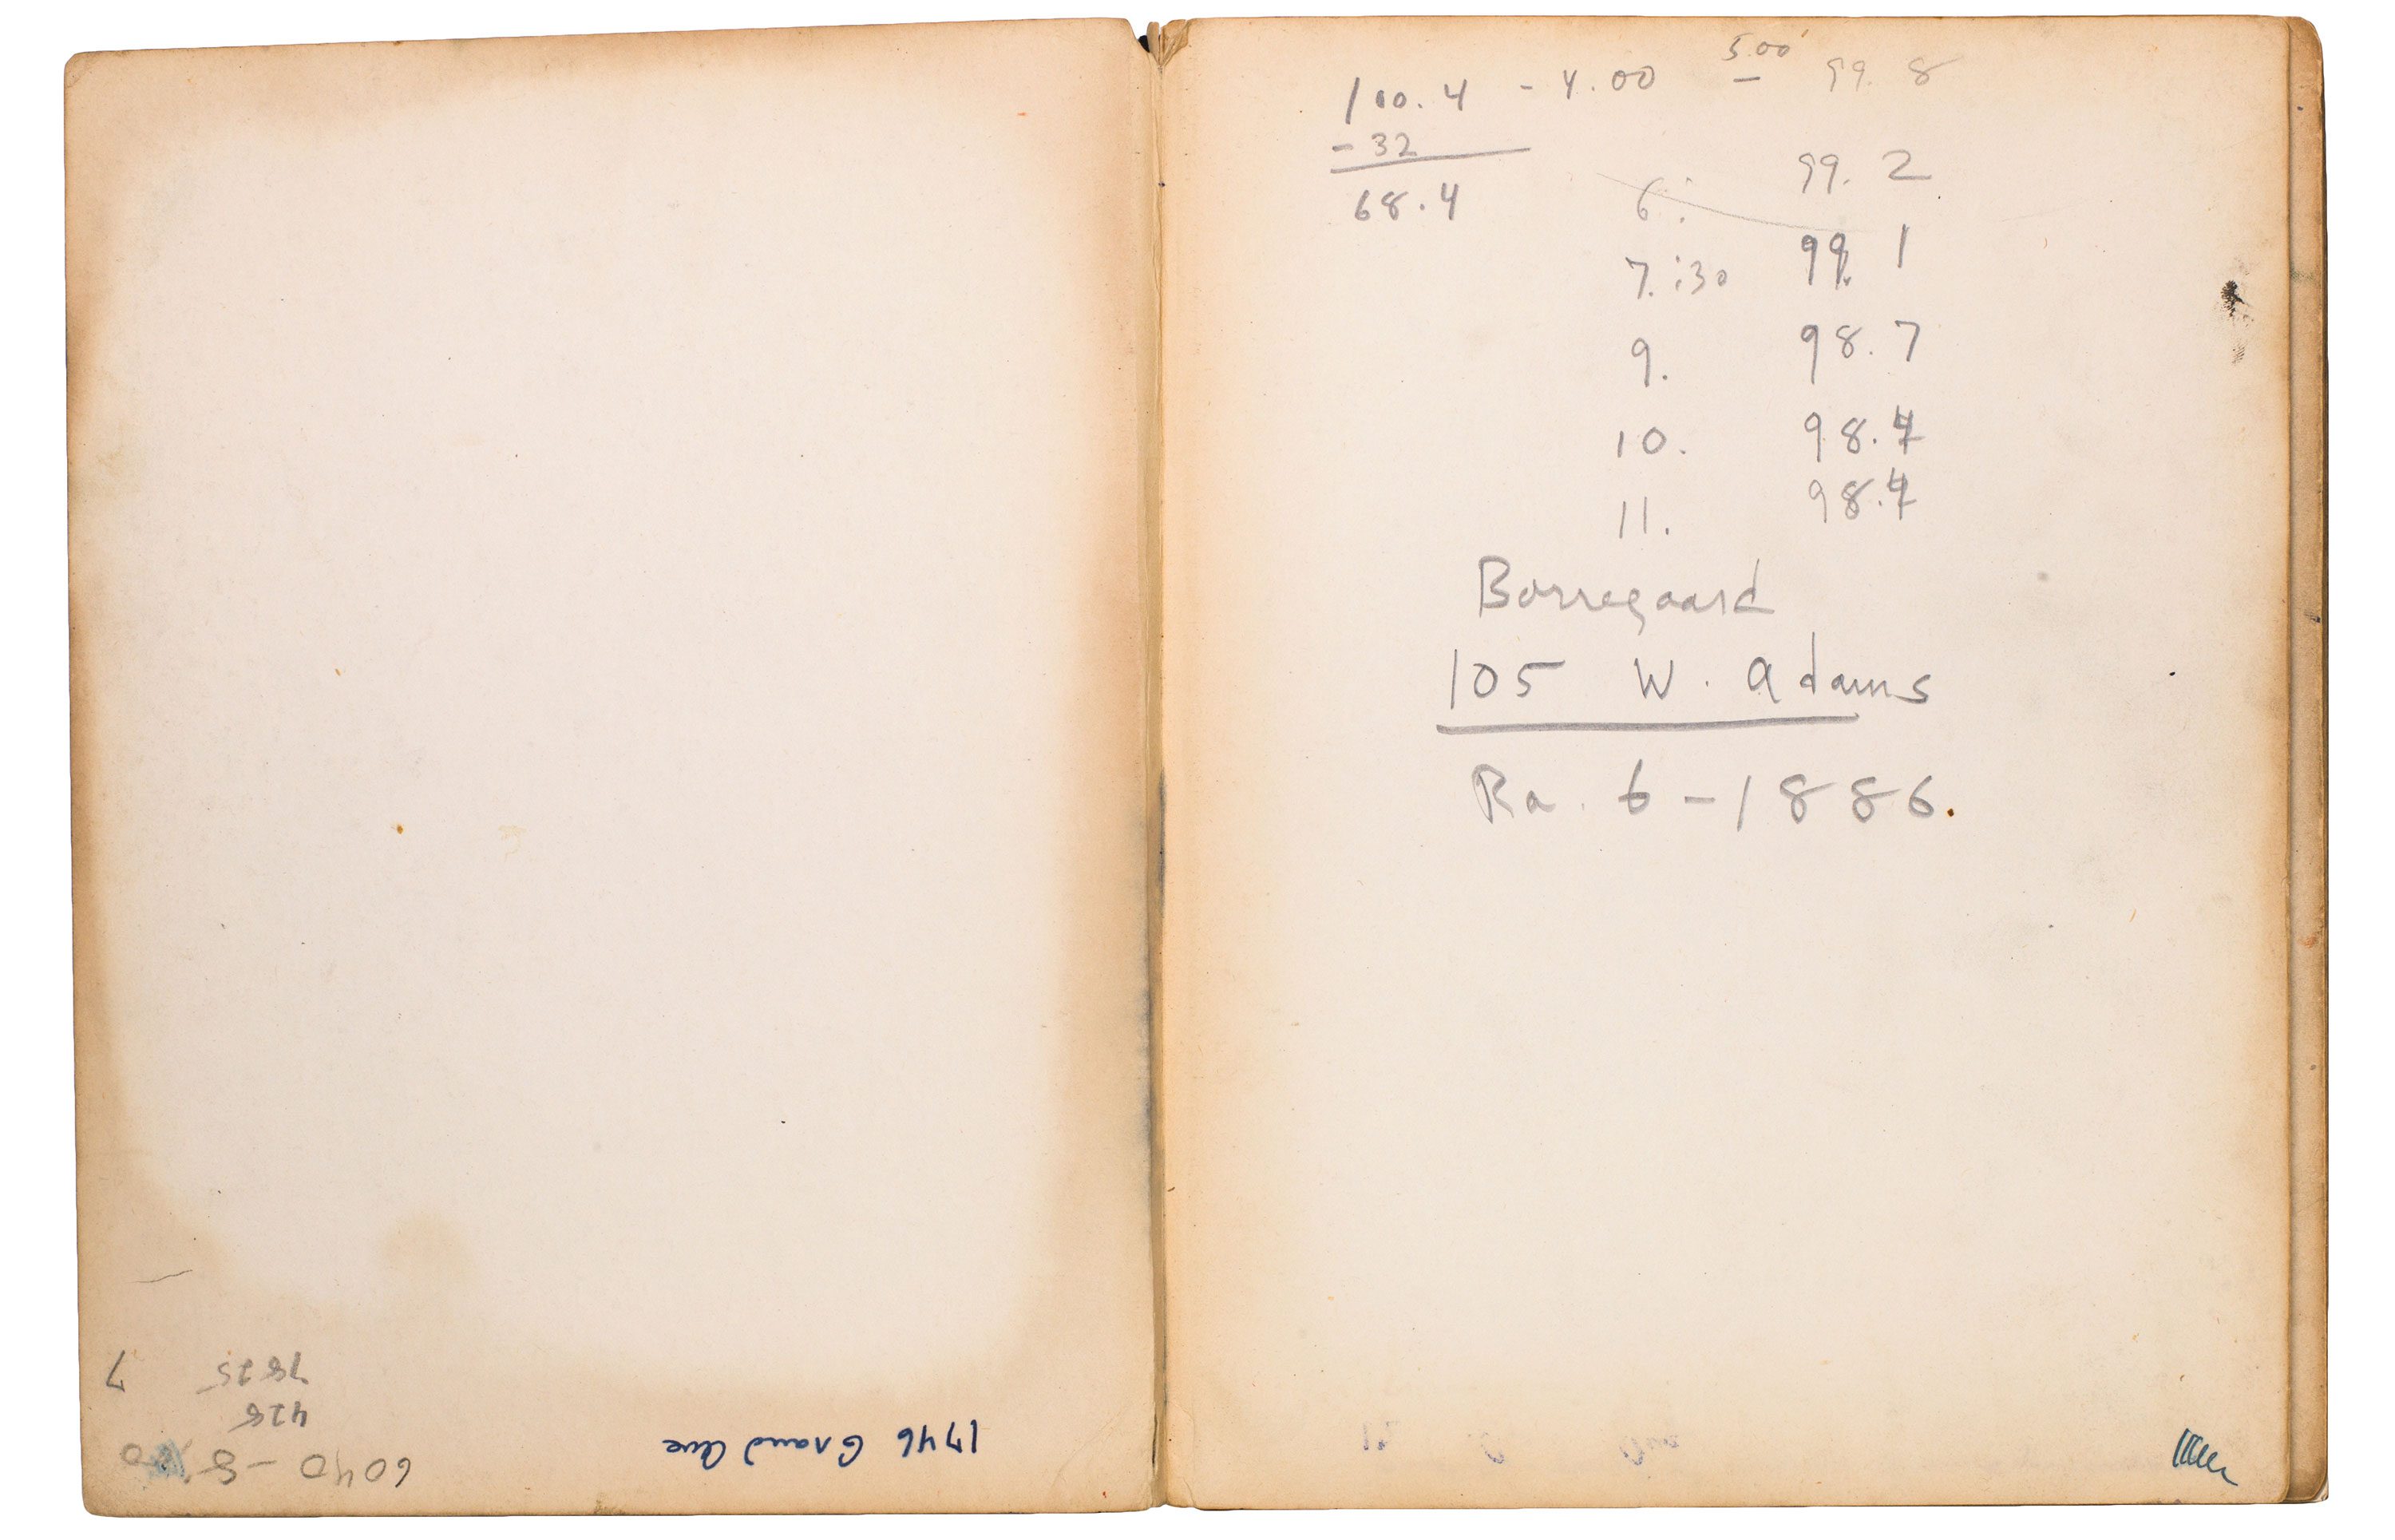 6040 - 8
428
7825
7
1746 Grand Ave
100.4 - 4.00 5.00 - 99.8
- 32
68.4
99.2
6:
7:30 99.1
9. 98.7
10. 98.4
11. 98.4
Borregaard
105 W. Adams
Ra. 6-1886.